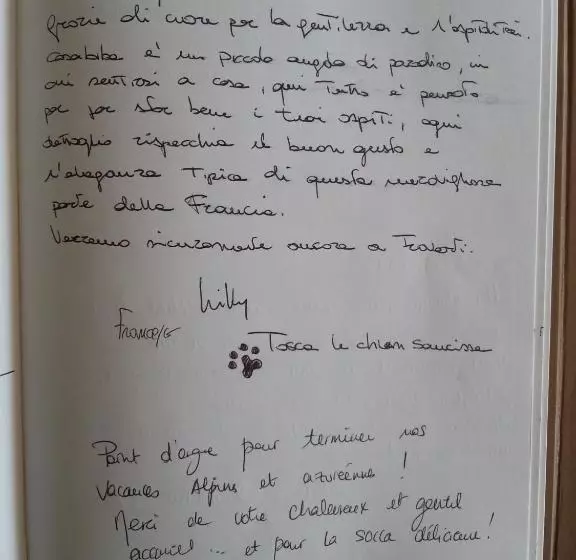 Grazie di cuore per la gentilezza e l'ospitalità.
Casabiba è un piccolo angolo di paradiso, in
cui sentirsi a casa, qui tutto è pensato
per far star bene i tuoi ospiti, ogni
dettaglio rispecchia il buon gusto e
l'eleganza tipica di questa meravigliosa
parte della Francia.
Verremo sicuramente ancora a
Milly
Francesco
Tosca le chien saucisse
Point d'orgue pour terminer nos
vacances Alpines et azuréennes !
Merci de votre chaleureux et gentil
accueil ... et pour la socca délicieuse !